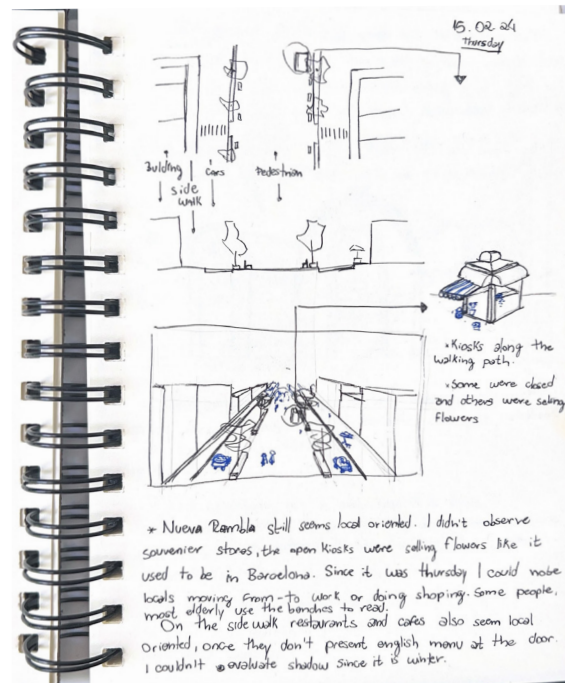 15.02.24
Thursday
Bulding
side
walk
Cars
Pedestrian
*Kiosks along the
walking path.
*Some were closed
and others were seling
flowers
* Nueva Rambla still seems local oriented. I didn't observe
souvenier stores, the open kiosks were selling flowers like it
used to be in Barcelona. Since it was thursday I could note
locals moving from-to work or doing shoping. Some people,
most elderly use the benches to read.
On the sidewalk restaurants and cafes also seem local
oriented, once they don't present english menu at the door.
I couldn't evaluate shadow since it is winter.